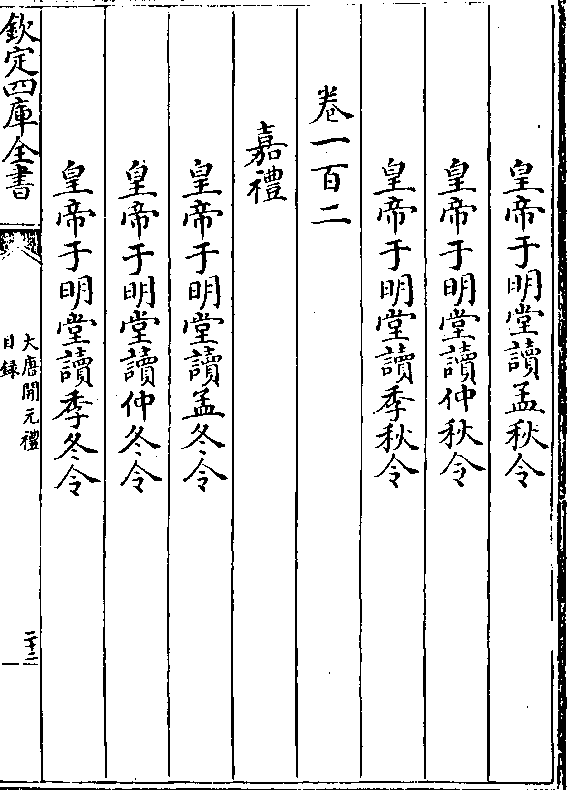 皇帝于明堂讀孟秋令
皇帝于明堂讀仲秋令
皇帝于明堂讀季秋令
卷一百二
嘉禮
皇帝于明堂讀孟冬令
皇帝于明堂讀仲冬令
皇帝于明堂讀季冬令
欽定四庫全書
大唐開元禮
目錄
二十二